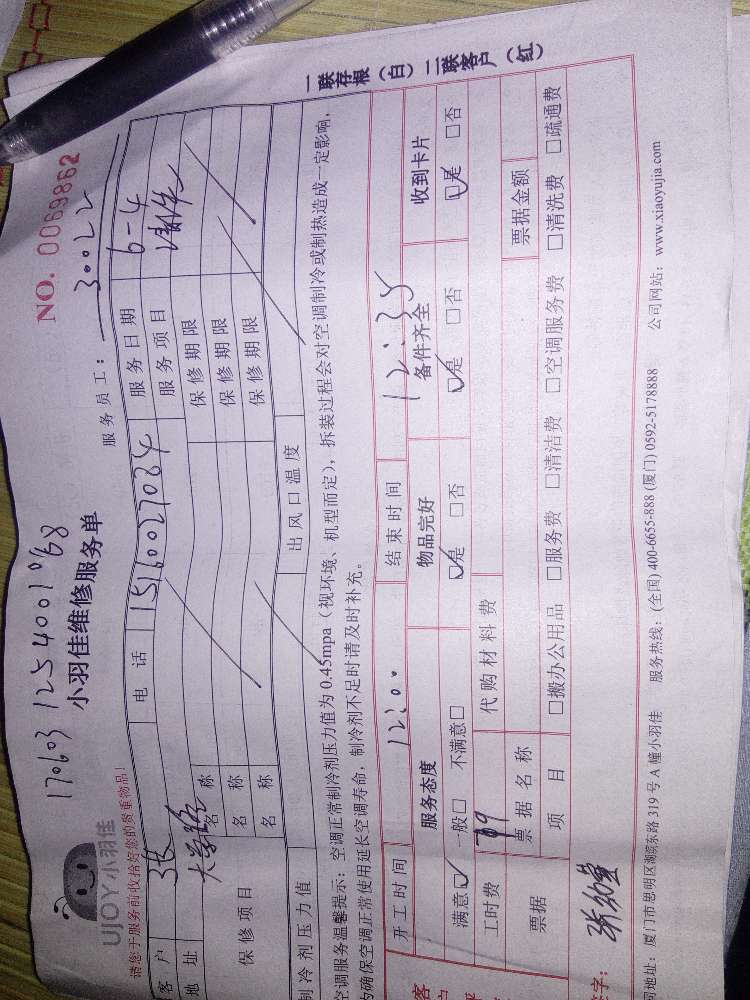 170603 1254001068
NO. 0069862
UJOY小羽佳
小羽佳维修服务单
服务员工： 30022
请您于服务前收拾好您的贵重物品！
客 户 张 电 话 15160027034 服务日期 6-4
地 址 大学路 服务项目
保修项目 名 称 保修期限
名 称 保修期限
名 称 保修期限
制冷剂压力值 出风口温度
空调服务温馨提示：空调正常制冷剂压力值为0.45mpa（视环境、机型而定），拆装过程会对空调制冷或制热造成一定影响，
为确保空调正常使用延长空调寿命，制冷剂不足时请及时补充。
开工时间 12:00 结束时间 12:35
服务态度 物品完好 备件齐全 收到卡片
满意☑ 一般□ 不满意□ ☑是 □否 ☑是 □否 ☑是 □否
工时费 79 代购材料费
票据 票据名称 票据金额
项 目 □搬办公用品 □服务费 □清洁费 □空调服务费 □清洗费 □疏通费
字：
司地址：厦门市思明区湖滨东路319号A幢小羽佳 服务热线：(全国) 400-6655-888 (厦门) 0592-5178888 公司网站：www.xiaoyujia.com
一联存根（白）二联客户（红）